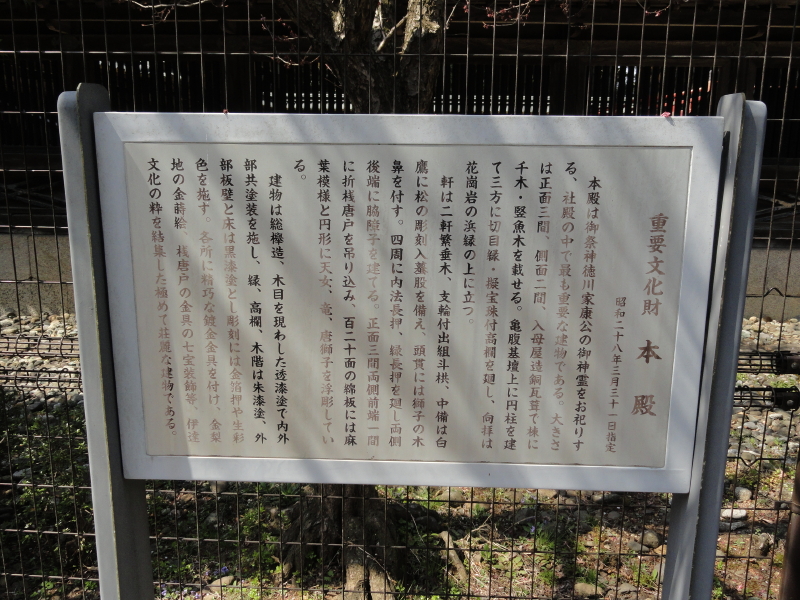 重要文化財 本殿
昭和二十八年三月三十一日指定
本殿は御祭神徳川家康公の御神霊をお祀りす
る、社殿の中で最も重要な建物である。大きさ
は正面三間、側面二間、入母屋造銅瓦葺で棟に
千木・堅魚木を載せる。亀腹基壇上に円柱を建
て三方に切目縁・擬宝珠付高欄を廻し、向拝は
花崗岩の浜縁の上に立つ。
軒は二軒繁垂木、支輪付出組斗拱、中備は白
鷹に松の彫刻入蟇股を備え、頭貫には獅子の木
鼻を付す。四周に内法長押、縁長押を廻し両側
後端に脇障子を建てる。正面三間両側前端一間
に折桟唐戸を吊り込み、百二十面の綿板には麻
葉模様と円形に天女、竜、唐獅子を浮彫してい
る。
建物は総欅造、木目を現わした透漆塗で内外
部共塗装を施し、縁、高欄、木階は朱漆塗、外
部板壁と床は黒漆塗とし彫刻には金箔押や生彩
色を施す。各所に精巧な鍍金金具を付け、金梨
地の金蒔絵、桟唐戸の金具の七宝装飾等、伊達
文化の粋を結集した極めて荘麗な建物である。